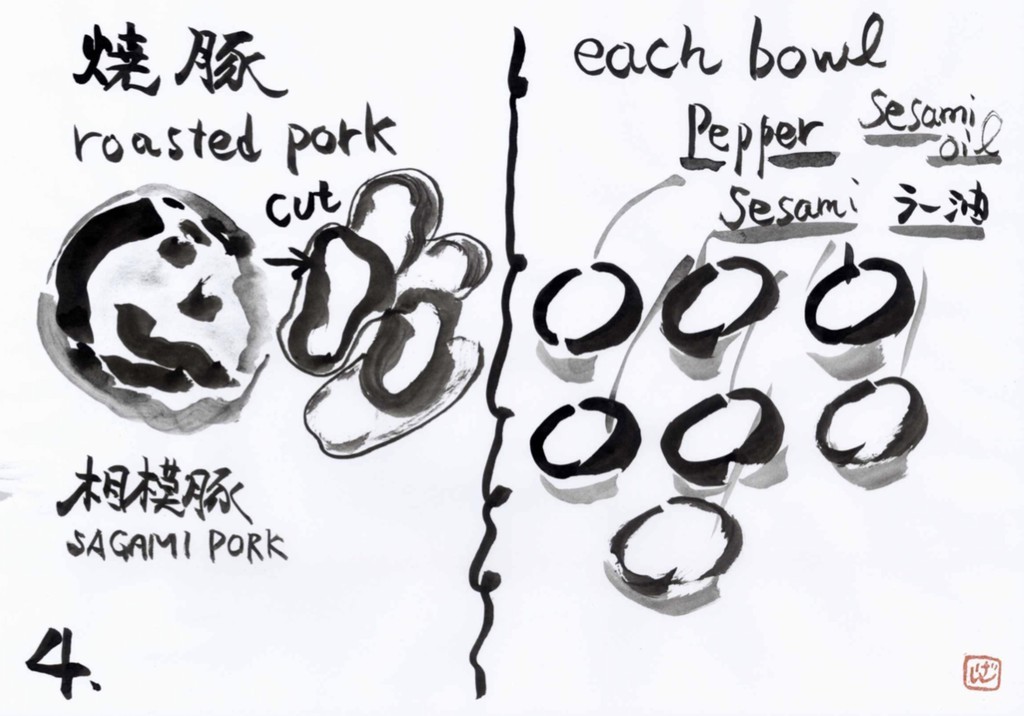 焼豚
roasted pork
cut
相模豚
SAGAMI PORK
4.
each bowl
Pepper
Sesami
oil
Sesami
ラー油